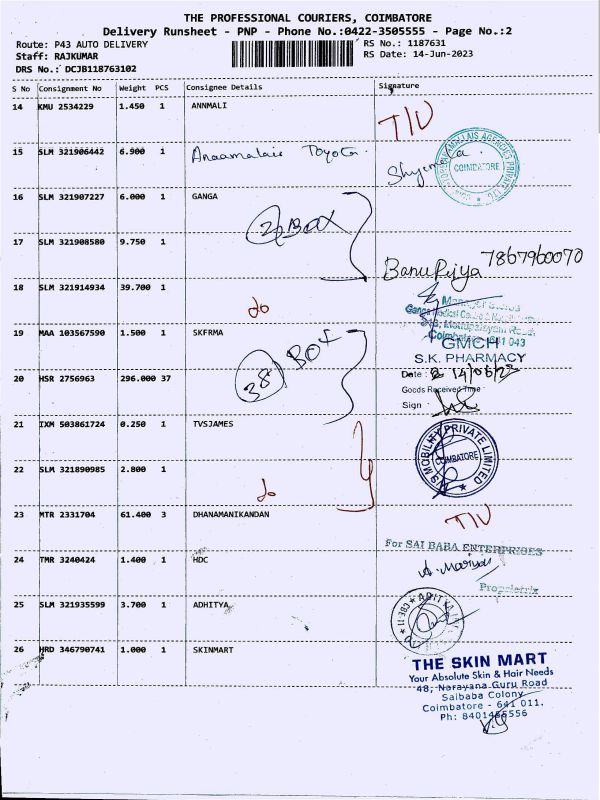 THE PROFESSIONAL COURIERS, COIMBATORE
Delivery Runsheet - PNP - Phone No.:0422-3505555 - Page No.:2
Route: P43 AUTO DELIVERY
RS No.: 1187631
Staff: RAJKUMAR
RS Date: 14-Jun-2023
DRS No.: DCJB118763102
S No Consignment No Weight PCS Consignee Details Signature
14 KMU 2534229 1.450 1 ANNMALI
15 SLM 321906442 6.900 1 Anaamalais Toyota
COIMBATORE
16 SLM 321907227 6.000 1 GANGA
BOX
17 SLM 321908580 9.750 1
7867960070
18 SLM 321914934 39.700 1
do
19 MAA 103567590 1.500 1 SKFRMA
38 BOX
GMCH
S.K. PHARMACY
20 HSR 2756963 296.000 37
Date: 14/06/23
Goods Received Time
Sign
21 IXM 503861724 0.250 1 TVSJAMES
MOBILITY PRIVATE LIMITED
COIMBATORE
22 SLM 321890985 2.800 1
do
23 MTR 2331704 61.400 3 DHANAMANIKANDAN
For SAI BABA ENTERPRISES
24 TMR 3240424 1.400 1 HDC
Proprietrix
25 SLM 321935599 3.700 1 ADHITYA
26 HRD 346790741 1.000 1 SKINMART
THE SKIN MART
Your Absolute Skin & Hair Needs
48, Narayana Guru Road
Saibaba Colony
Coimbatore - 641 011.